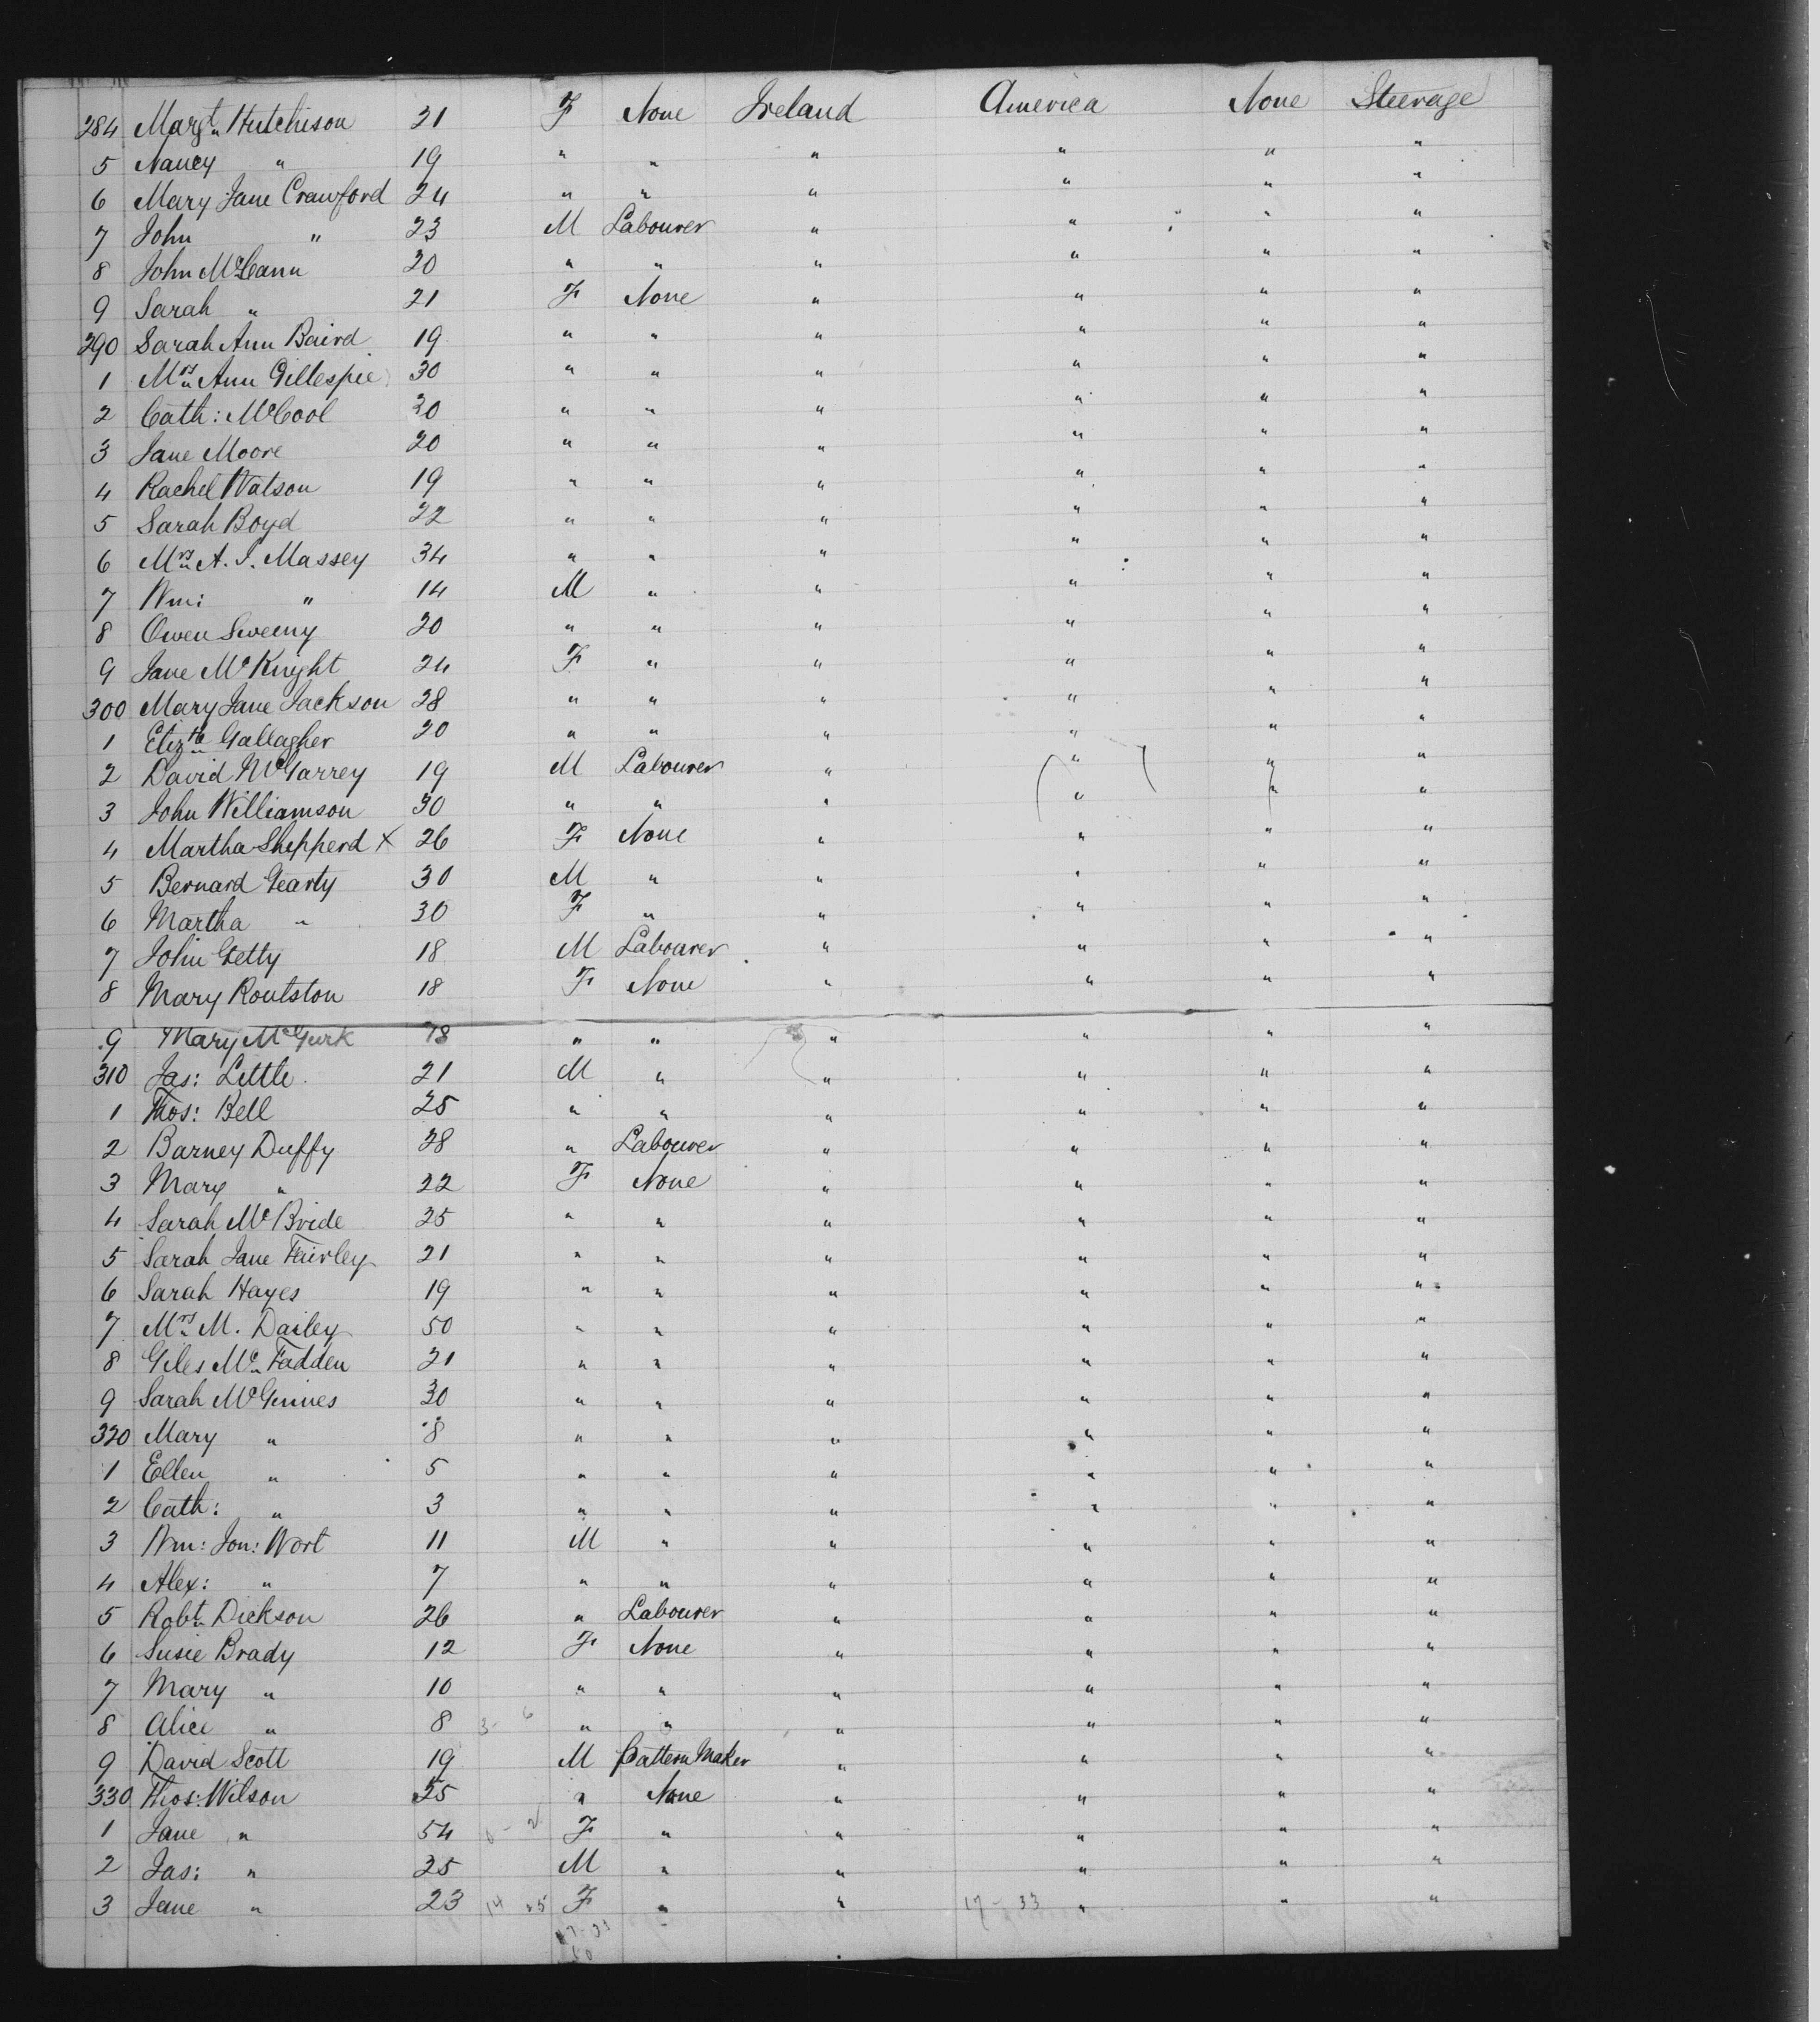 284 Margt Hutchison 21 F None Ireland America None Steerage
5 Nancy " 19 " " " " " "
6 Mary Jane Crawford 24 " " " " " "
7 John " 23 M Labourer " " " "
8 John McCann 20 " " " " " "
9 Sarah " 21 F None " " " "
290 Sarah Ann Baird 19 " " " " " "
1 Mrs Ann Gillespie 30 " " " " " "
2 Cath: McCool 20 " " " " " "
3 Jane Moore 20 " " " " " "
4 Rachel Watson 19 " " " " " "
5 Sarah Boyd 22 " " " " " "
6 Mrs A. J. Massey 34 " " " " " "
7 Wm: " 14 M " " " " "
8 Owen Sweeny 20 " " " " " "
9 Jane McKnight 24 F " " " " "
300 Mary Jane Jackson 28 " " " " " "
1 Elizth Gallagher 20 " " " " " "
2 David McGarrey 19 M Labourer " " " "
3 John Williamson 30 " " " " " "
4 Martha Shepperd X 26 F None " " " "
5 Bernard Gearty 30 M " " " " "
6 Martha " 30 F " " " " "
7 John Getty 18 M Labourer " " " "
8 Mary Roulston 18 F None " " " "
9 Mary McGurk 18 " " " " " "
310 Jas: Little 21 M " " " " "
1 Thos: Bell 25 " " " " " "
2 Barney Duffy 28 " Labourer " " " "
3 Mary " 22 F None " " " "
4 Sarah McBride 25 " " " " " "
5 Sarah Jane Fairley 21 " " " " " "
6 Sarah Hayes 19 " " " " " "
7 Mrs M. Dailey 50 " " " " " "
8 Giles McFadden 21 " " " " " "
9 Sarah McGinnes 30 " " " " " "
320 Mary " 8 " " " " " "
1 Ellen " 5 " " " " " "
2 Cath: " 3 " " " " " "
3 Wm: Jon: Wort 11 M " " " " "
4 Alex: " 7 " " " " " "
5 Robt Dickson 26 " Labourer " " " "
6 Susie Brady 12 F None " " " "
7 Mary " 10 " " " " " "
8 Alice " 8 3- 6 " " " " " "
9 David Scott 19 M Pattern Maker " " " "
330 Thos: Wilson 55 " None " " " "
1 Jane " 54 F " " " " "
2 Jas: " 25 M " " " " "
3 Jane " 23 14 F " " 17-33 " " "